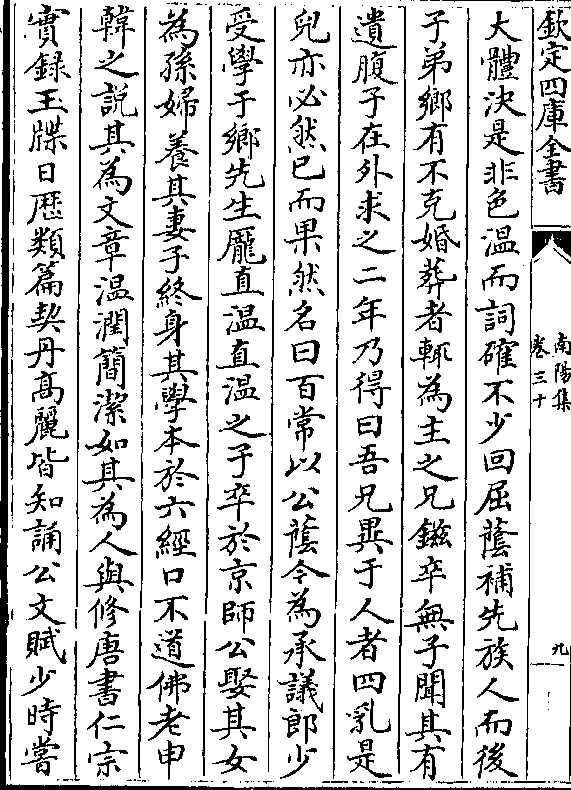 欽定四庫全書
南陽集
卷三十
九
大體決是非色溫而詞確不少回屈蔭補先族人而後
子弟鄉有不克婚葬者輒為主之兄鎡卒無子聞其有
遺腹子在外求之二年乃得曰吾兄異于人者四乳是
兒亦必然已而果然名曰百常以公蔭今為承議郎少
受學于鄉先生龎直溫直溫之子卒於京師公娶其女
為孫婦養其妻子終身其學本於六經口不道佛老申
韓之說其為文章溫潤簡潔如其為人與修唐書仁宗
實録玉牒日歴類篇契丹髙麗皆知誦公文賦少時嘗